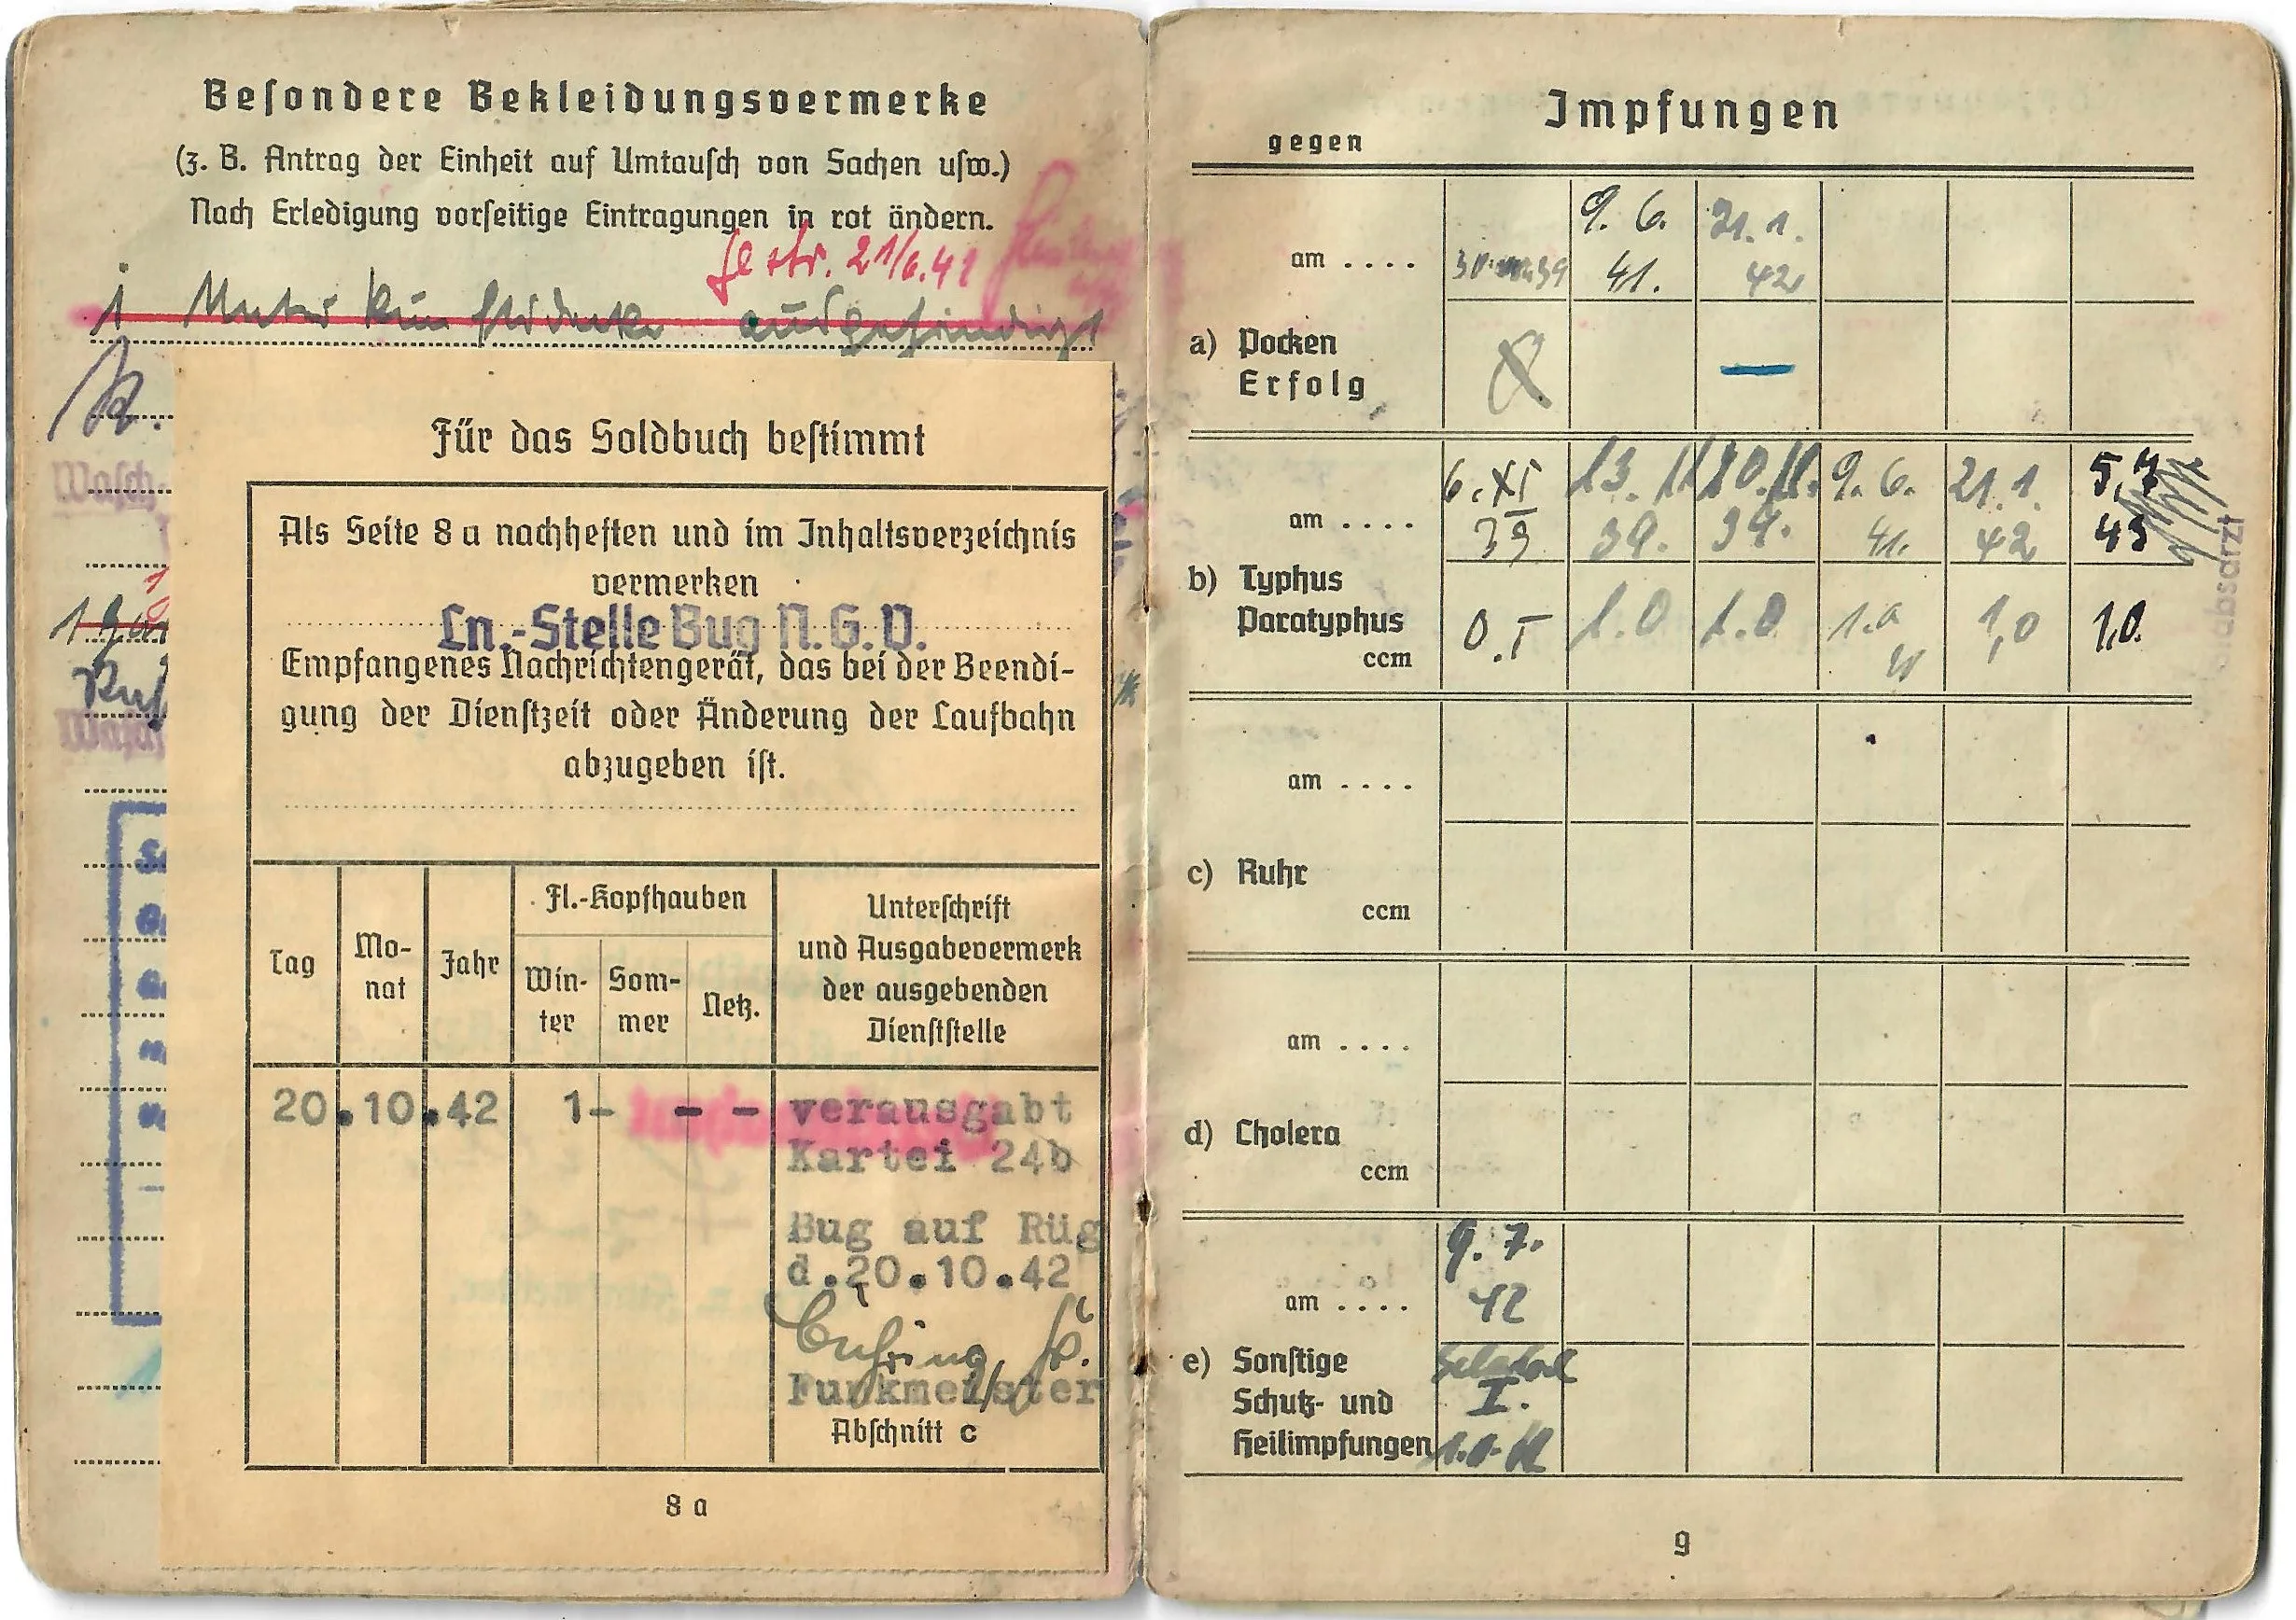 Besondere Bekleidungsvermerke
(z. B. Antrag der Einheit auf Umtausch von Sachen usw.)
Nach Erledigung vorseitige Eintragungen in rot ändern.
gestr. 21/6.41
1 Unterkunftsdecke ausgehändigt
Wasch-
Für das Soldbuch bestimmt
Als Seite 8 a nachheften und im Inhaltsverzeichnis
vermerken
Ln.-Stelle Bug N.G.V.
Empfangenes Nachrichtengerät, das bei der Beendi-
gung der Dienstzeit oder Änderung der Laufbahn
abzugeben ist.
Tag
Mo-
nat
Jahr
Fl.-Kopfhauben
Win-
ter
Som-
mer
Netz.
Unterschrift
und Ausgabevermerk
der ausgebenden
Dienststelle
20.10.42 1- - - verausgabt
Kartei 24b
Bug auf Rüg
d.20.10.42
Funkmeister
Abschnitt c
8 a
Impfungen
gegen
am .... 9. 6. 41. 21. 1. 42
a) Pocken
Erfolg
am .... 6. XI 39 13. 11. 39. 20. 11. 39. 9. 6. 41. 21. 1. 42 5.7 43
b) Typhus
Paratyphus
ccm 0.5 1.0 1.0 1.0 1,0 1,0.
am ....
c) Ruhr
ccm
am ....
d) Cholera
ccm
am .... 9. 7. 42
e) Sonstige
Schutz- und I.
Heilimpfungen
9